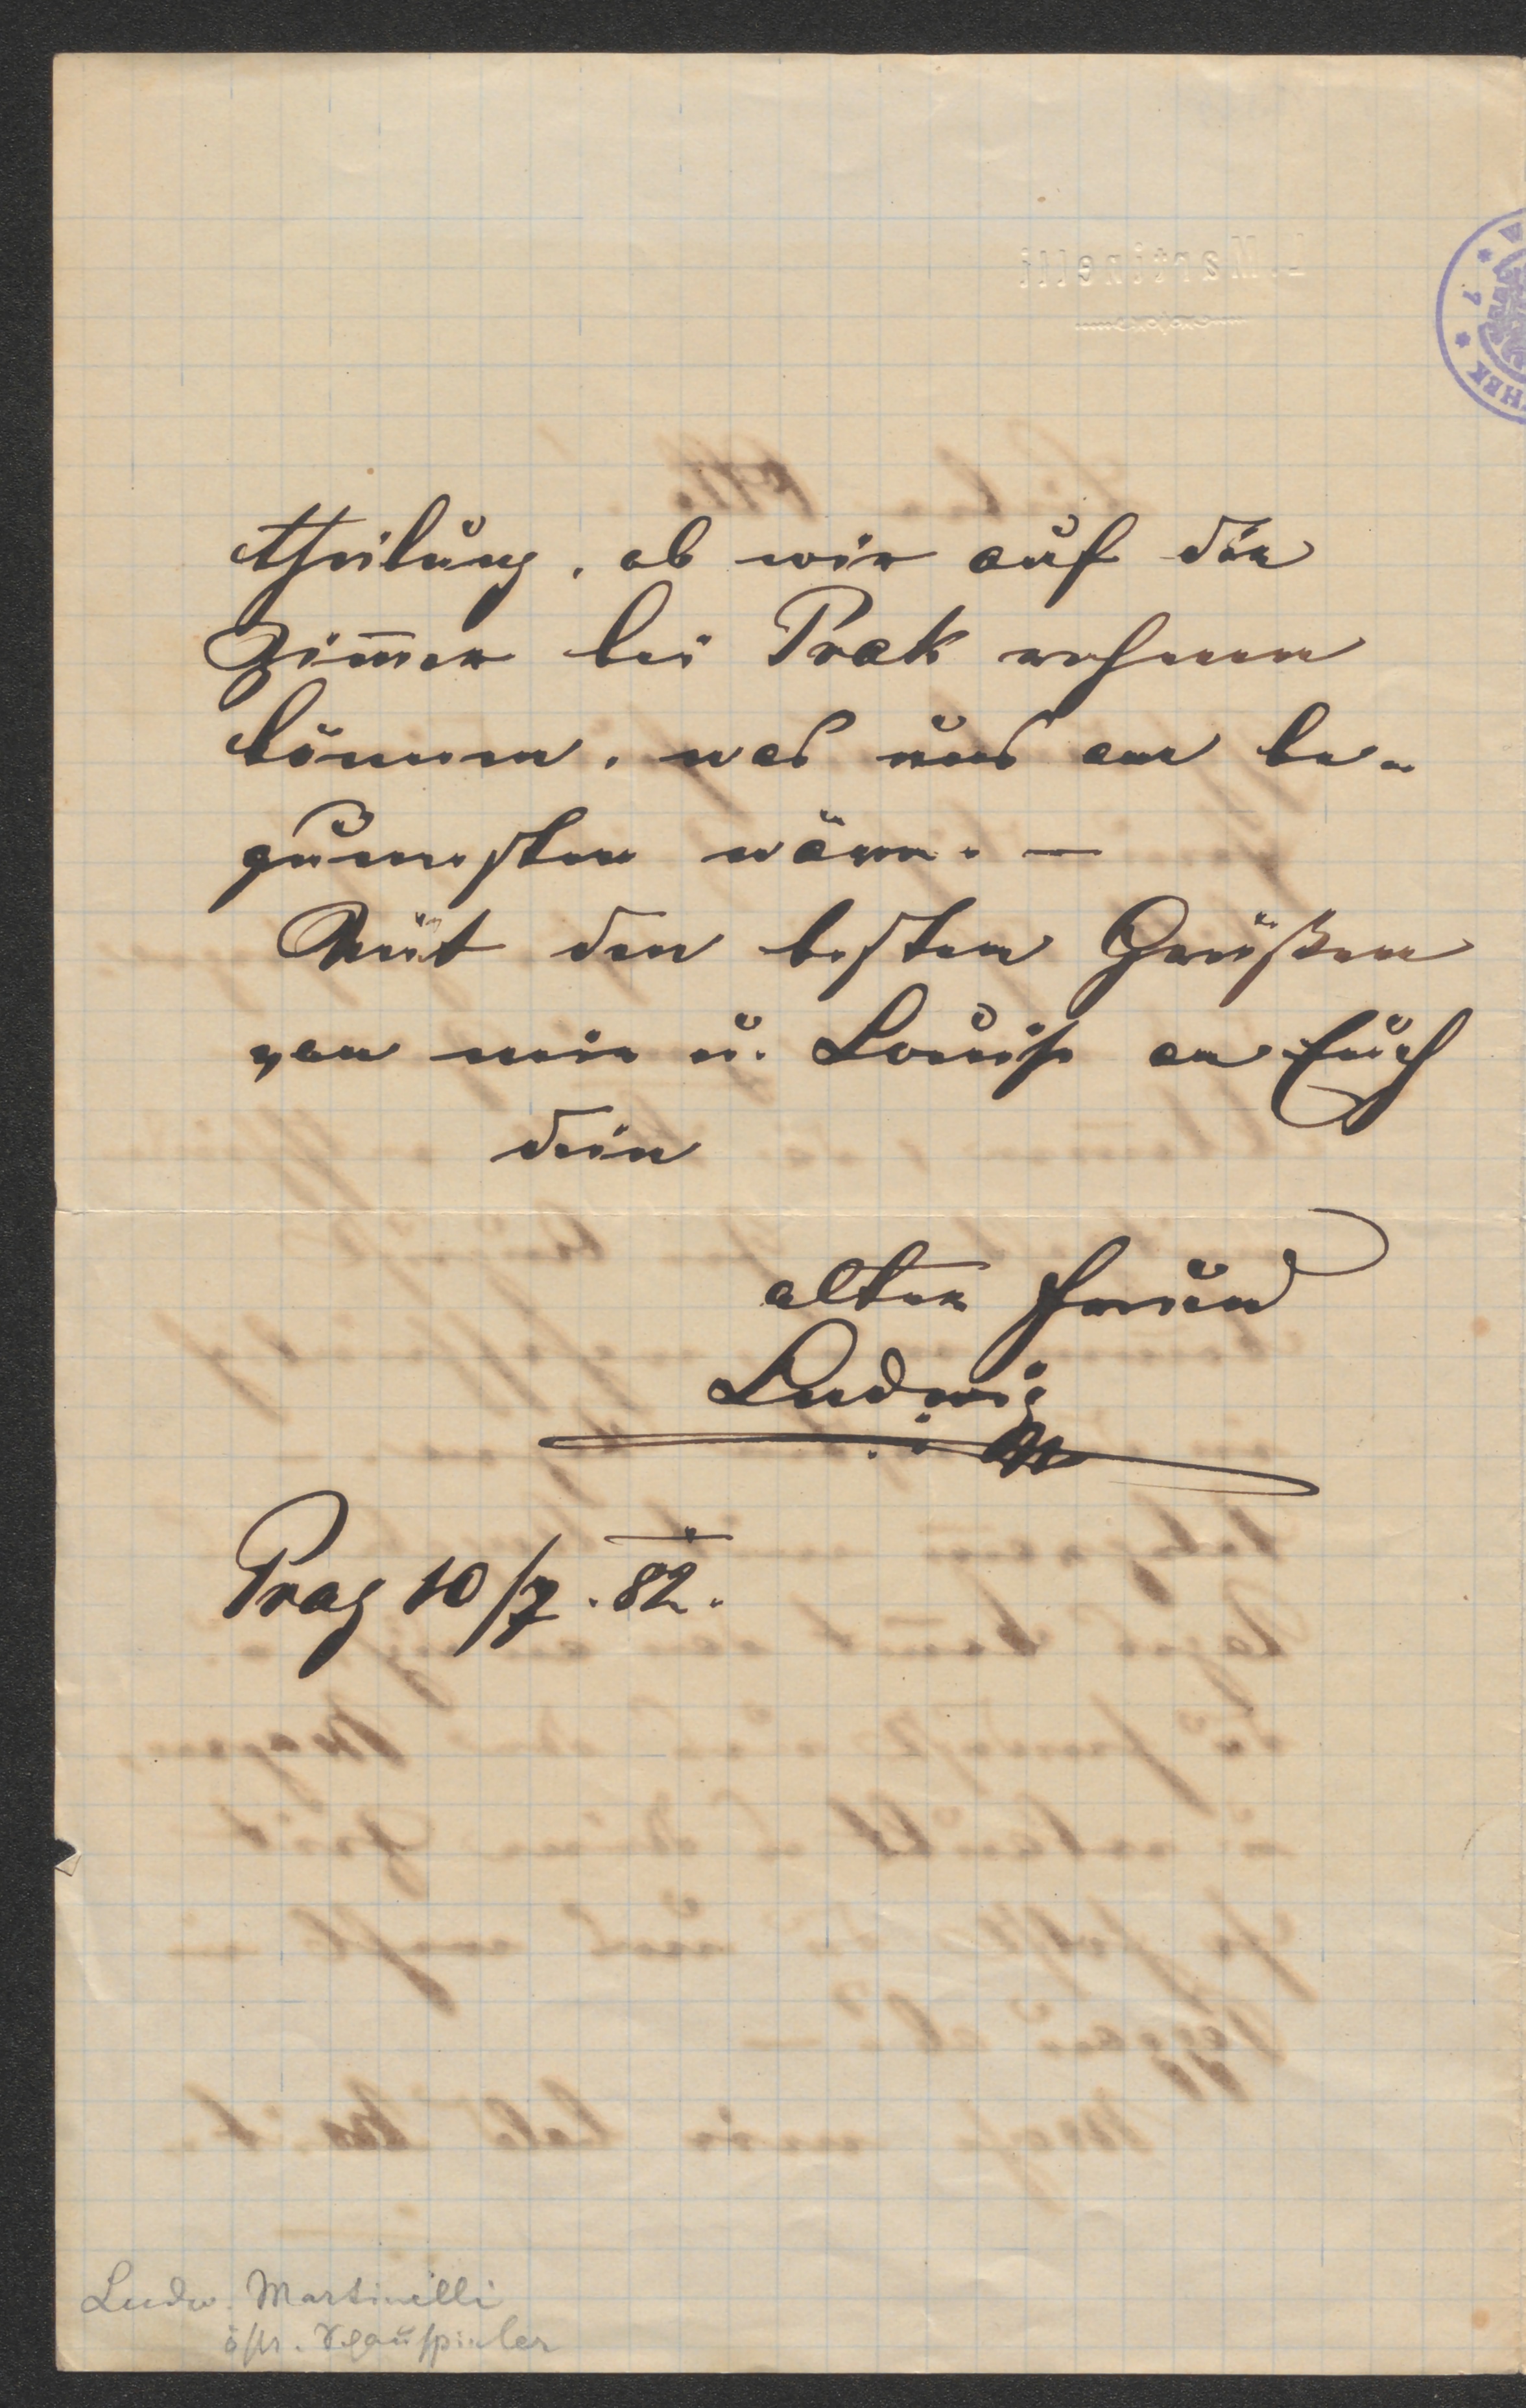 theilung, ob wir auf die
Zim̅er bei Prak rechnen
können, was uns am be-
quemsten wäre. —
Mit den besten Grüßen
von mir u. Louise an Euch
dein
alter Freund
Ludwig
M
Prag 10/7. 82.
L. Martinelli
Ludw. Martinelli
östr. Schauspieler